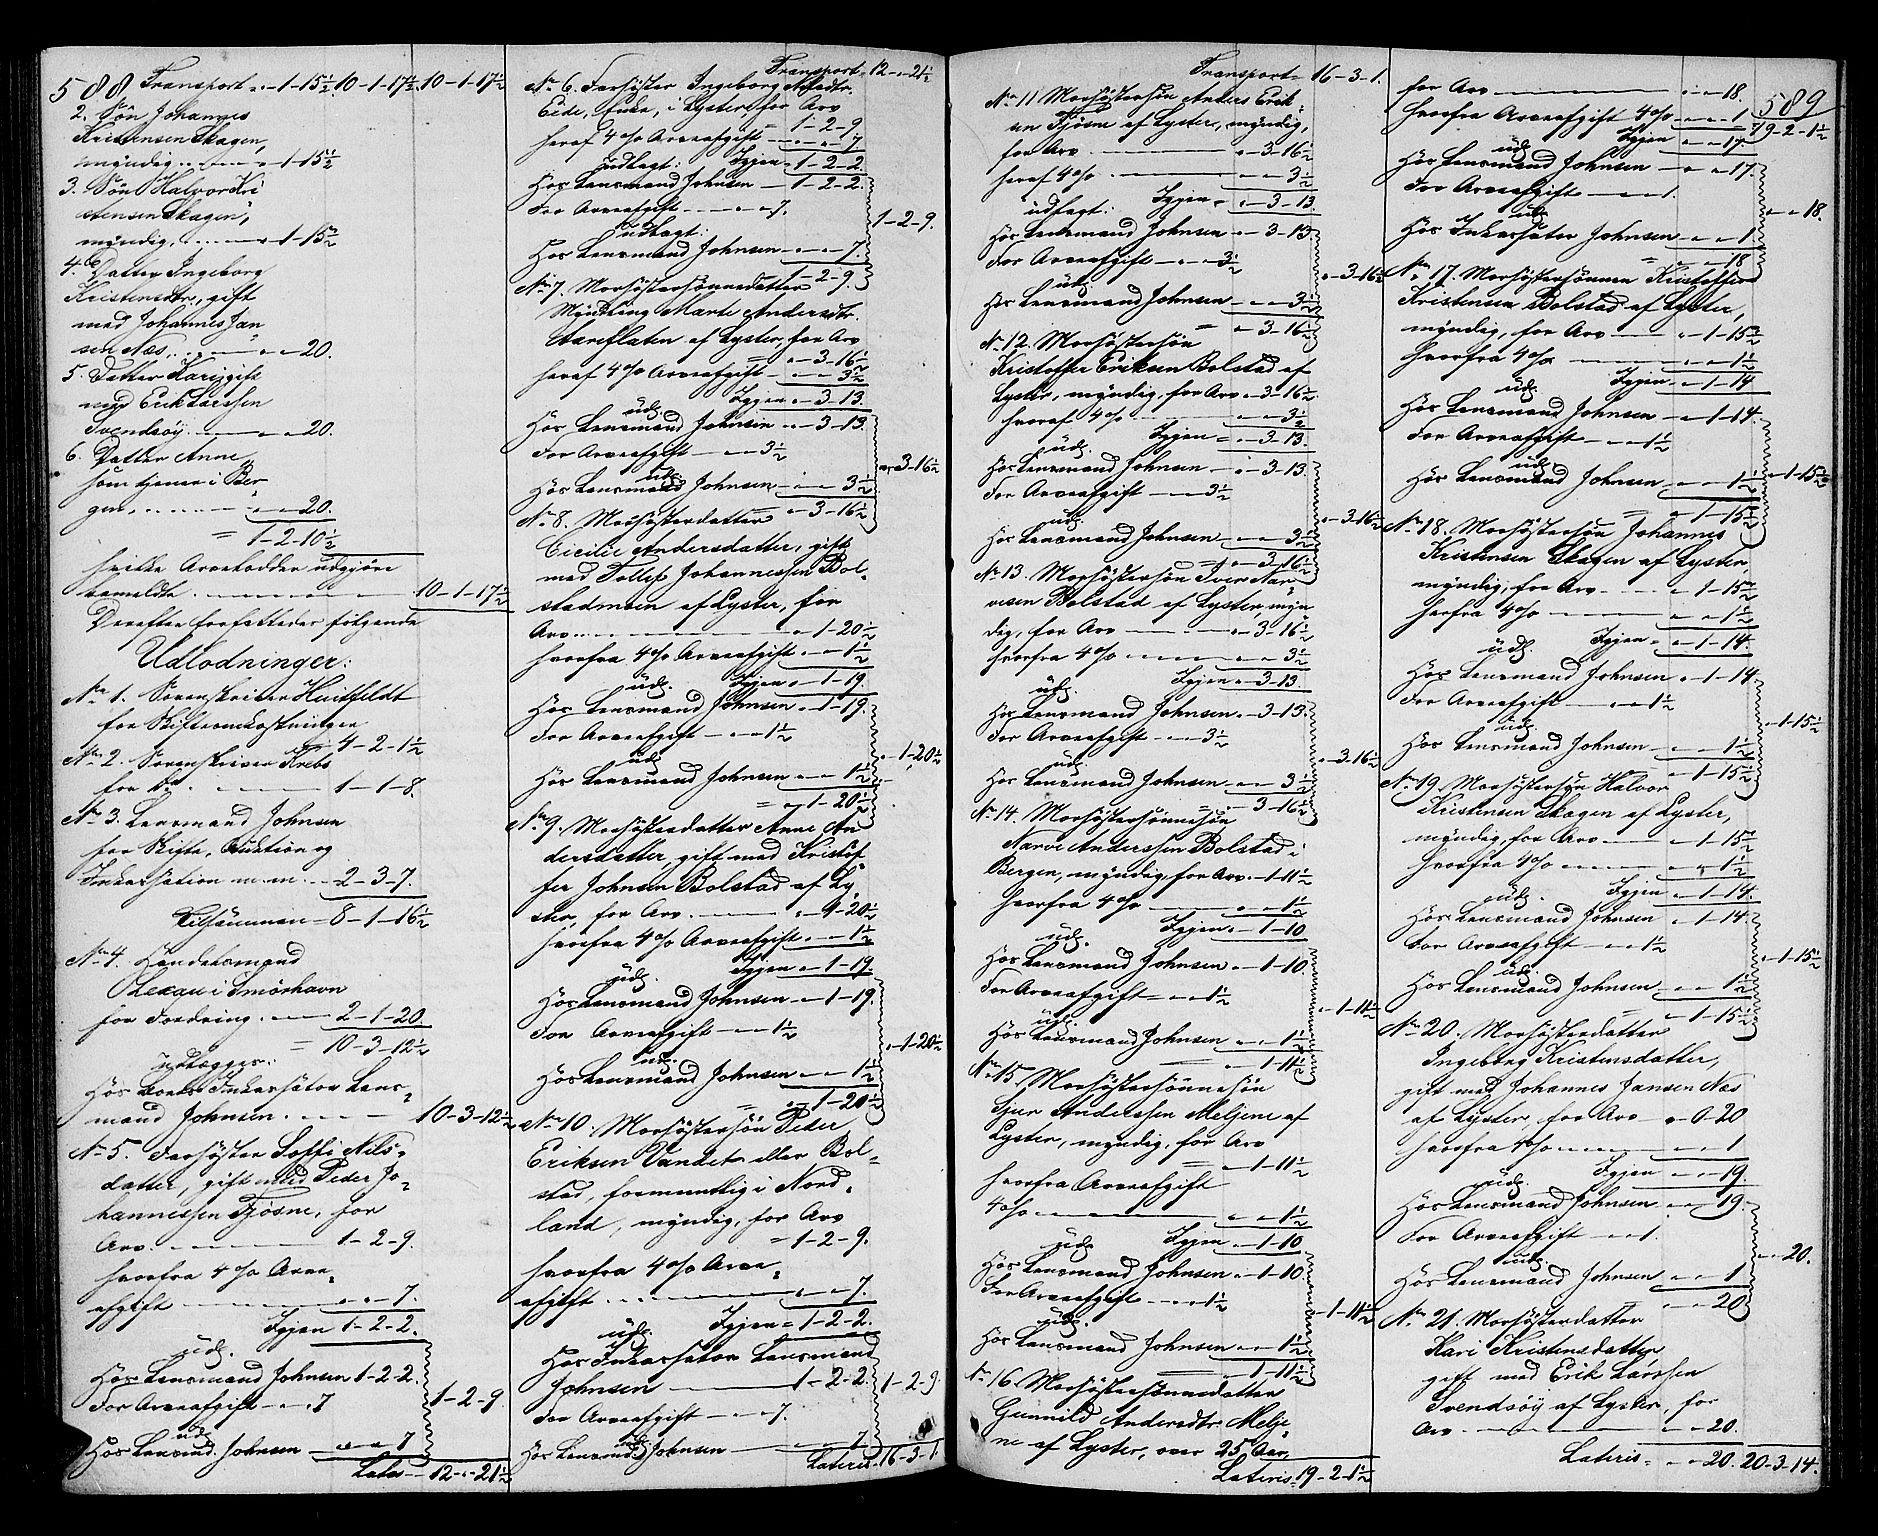 588 Transport „-1-15½ 10-1-17½ 10-1-17½
2. Søn Johannes
Kristensen Skagen,
myndig . . „-1-15½
3. Søn Halvor Kri
stensen Skagen,
myndig, . . . „-1-15½
4. Datter Ingeborg
Kristensdtr, gift
med Johannes Jan-
sen Næs, . . „-„-20.
5. Datter Kari, gift
med Erik Larssen
Svendsøy. . „-„-20.
6. Datter Anne
som tjener i Ber-
gen, . . . „-„-20.
= 1-2-10½
hvilke Arvelodder udgjøre
bemeldte . . . 10-1-17½
Derefter forfattedes følgende
Udlodninger:
No 1. Sorenskriver Huitfeldt
for Skifteomkostninger
4-2-1½
No 2. Sorenskriver Krebs
for do . . . 1-1-8.
No 3. Lensmand Johnsen
for Skifte, Auktion og
Inkassation m. m. . 2-3-7.
Tilsammen = 8-1-16½
No 4. Handelsmand
Lexau i Smørhavn
for Fordring. . 2-1-20.
= 10-3-12½
Udlægges:
Hos Boets Inkassator Lens-
mand Johnsen. . . . 10-3-12½
No 5. Farsøster Soffi Nils-
datter, gift med Peder Jo-
hannessen Fjøsne, for
Arv. . . . 1-2-9.
hvorfra 4 % Arve-
afgift „-„-7.
Igjen 1-2-2.
udl.
Hos Lensmand Johnsen 1-2-2.
For Arveafgift „-„-7 1-2-9.
udl.
Hos Lensmd. Johnsen „-„-7
Lateris 12-„-21½
Transport 12-„-21½
No 6. Farsøster Ingeborg Nilsdtr.
Eide, Enke, i Lyster, for Arv
= 1-2-9
heraf 4 % Arveafgift „-„-7
udlagt: Igjen = 1-2-2.
Hos Lensmand Johnsen 1-2-2.
For Arveafgift „-„-7. 1-2-9.
udlagt:
Hos Lensmand Johnsen „-„-7.
1-2-9.
No 7. Morsøstersønnedatter
Myndling Marte Andersdtr.
af Lyster, for Arv
= „-3-16½
heraf 4 % Arveafgift „-„-3½
Igjen „-3-13.
udl.
Hos Lensmand Johnsen „-3-13.
For Arveafgift „-„-3½ „-3-16½
udl.
Hos Lensmand Johnsen „-„-3½
= „-3-16½
No 8. Morsøsterdatter
Cicilie Andersdatter, gift
med Tollef Johannessen Bol-
stadmoen af Lyster, for
Arv . . . „-1-20½
hvorfra 4 % Arveafgift „-„-1½
Igjen „-1-19.
udl.
Hos Lensmand Johnsen „-1-19.
For Arveafgift „-„-1½ „-1-20½
udl.
Hos Lensmand Johnsen „-„-1½
= „-1-20½
No 9. Morsøsterdatter Anne An
dersdatter, gift med Kristof-
fer Johnsen Bolstad af Ly-
ster, for Arv. „-1-20½
hvorfra 4 % Arveafgift „-„-1½
Igjen „-1-19
udl.
Hos Lensmand Johnsen „-1-19.
For Arveafgift „-„-1½ „-1-20½
udl.
Hos Lensmand Johnsen „-„-1½
= „-1-20½
No 10. Morsøstersøn Peder
Eriksen Vandet eller Bol-
stad, formentlig i Nord-
land, myndig, for Arv
= 1-2-9.
hvorfra 4 % Arve-
afgift . . . „-„-7.
Igjen = 1-2-2.
udl.
Hos Inkassator Lensmand
Johnsen 1-2-2. 1-2-9.
For Arveafgift „-„-7.
udl.
Hos Lensmd Johnsen „-„-7.
Lateris 16-3-1.
Transport 16-3-1.
No 11 Morsøstersøn Anders Erik-
sen Fjøsne af Lyster, myndig,
for Arv „-3-16½
heraf 4 % „-„-3½
udlagt: Igjen „-3-13.
Hos Lensmand Johnsen „-3-13.
For Arveafgift „-„-3½ „-3-16½
udl.
Hos Lensmand Johnsen „-„-3½
= „-3-16½
No 12. Morsøstersøn
Kristoffer Eriksen Bolstad af
Lyster, myndig, for Arv „-3-16½.
hvoraf 4 % „-„-3½
udl. Igjen = „-3-13.
Hos Lensmand Johnsen „-3-13.
For Arveafgift „-„-3½
udl. „-3-16½
Hos Lensmand Johnsen „-„-3½
= „-3-16½
No 13. Morsøstersøn Iver Nar-
vesen Bolstad af Lyster, myn
dig, for Arv „-3-16½
hvorfra 4 % „-„-3½
Igjen „-3-13.
udl.
Hos Lensmand Johnsen „-3-13.
For Arveafgift „-„-3½ „-3-16½
udl.
Hos Lensmand Johnsen „-„-3½
= „-3-16½
No 14. Morsøstersønnesøn
Narve Anderssen Bolstad i
Bergen, myndig, for Arv „-1-11½
hvorfra 4 % „-„-1½
udl. Igjen „-1-10
Hos Lensmand Johnsen „-1-10.
For Arveafgift „-„-1½ „-1-11½
udl.
Hos Lensmand Johnsen „-„-1½
„-1-11½
No 15. Morsøstersønnesøn
Sjur Anderssen Meljene af
Lyster, myndig, for Arv
= „-1-11½
hvorfra Arveafgift
4 % „-„-1½
udl. Igjen „-1-10
Hos Lensmand Johnsen „-1-10.
For Arveafgift „-„-1½ „-1-11½
udl.
Hos Lensmand Johnsen „-„-1½
„-1-11½
No 16. Morsøstersønnedatter
Gunnild Andersdtr Melje-
ne af Lyster, over 25 Aar,
Lateris 19-2-1½
589
for Arv „-„-18.
hvorfra Arveafgift 4 % „-„-1 19-2-1½
Igjen „-„-17.
udl.
Hos Lensmand Johnsen „-„-17.
For Arveafgift „-„-1. „-„-18.
udl.
Hos Inkassator Johnsen „-„-1
= „-„-18
No 17. Morsøstersønnen Kristoffer
Kristensen Bolstad af Lyster,
myndig, for Arv „-1-15½
hvorfra 4 % „-„-1½
udl. Igjen „-1-14
Hos Lensmand Johnsen „-1-14.
For Arveafgift „-„-1½
udl. „-1-15½
Hos Lensmand Johnsen „-„-1½
= „-1-15½
No 18. Morsøstersøn Johannes
Kristensen Skagen af Lyster,
myndig, for Arv „-1-15½
herfra 4 % „-„-1½
udl. Igjen „-1-14.
Hos Lensmand Johnsen „-1-14.
For Arveafgift „-„-1½ „-1-15½
udl.
Hos Lensmand Johnsen „-„-1½
„-1-15½
No 19. Morsøstersøn Halvor
Kristensen Skagen af Lyster,
myndig, for Arv „-1-15½
hvorfra 4 % „-„-1½
udl. Igjen „-1-14.
Hos Lensmand Johnsen „-1-14.
For Arveafgift „-„-1½ „-1-15½
udl.
Hos Lensmand Johnsen „-„-1½
= „-1-15½
No 20. Morsøsterdatter
Ingeborg Kristensdatter,
gift med Johannes Jansen Næs
af Lyster, for Arv „-0-20
hvorfra 4 % „-„-1
udl. Igjen „-„-19.
Hos Lensmand Johnsen „-„-19.
For Arveafgift „-„-1. „-„-20.
udl.
Hos Lensmand Johnsen „-„-1
= „-„-20
No 21. Morsøsterdatter
Kari Kristensdatter
gift med Erik Larssen
Svendsøy af Lyster, for
Arv „-„-20.
Lateris „-„-20. 20-3-14.